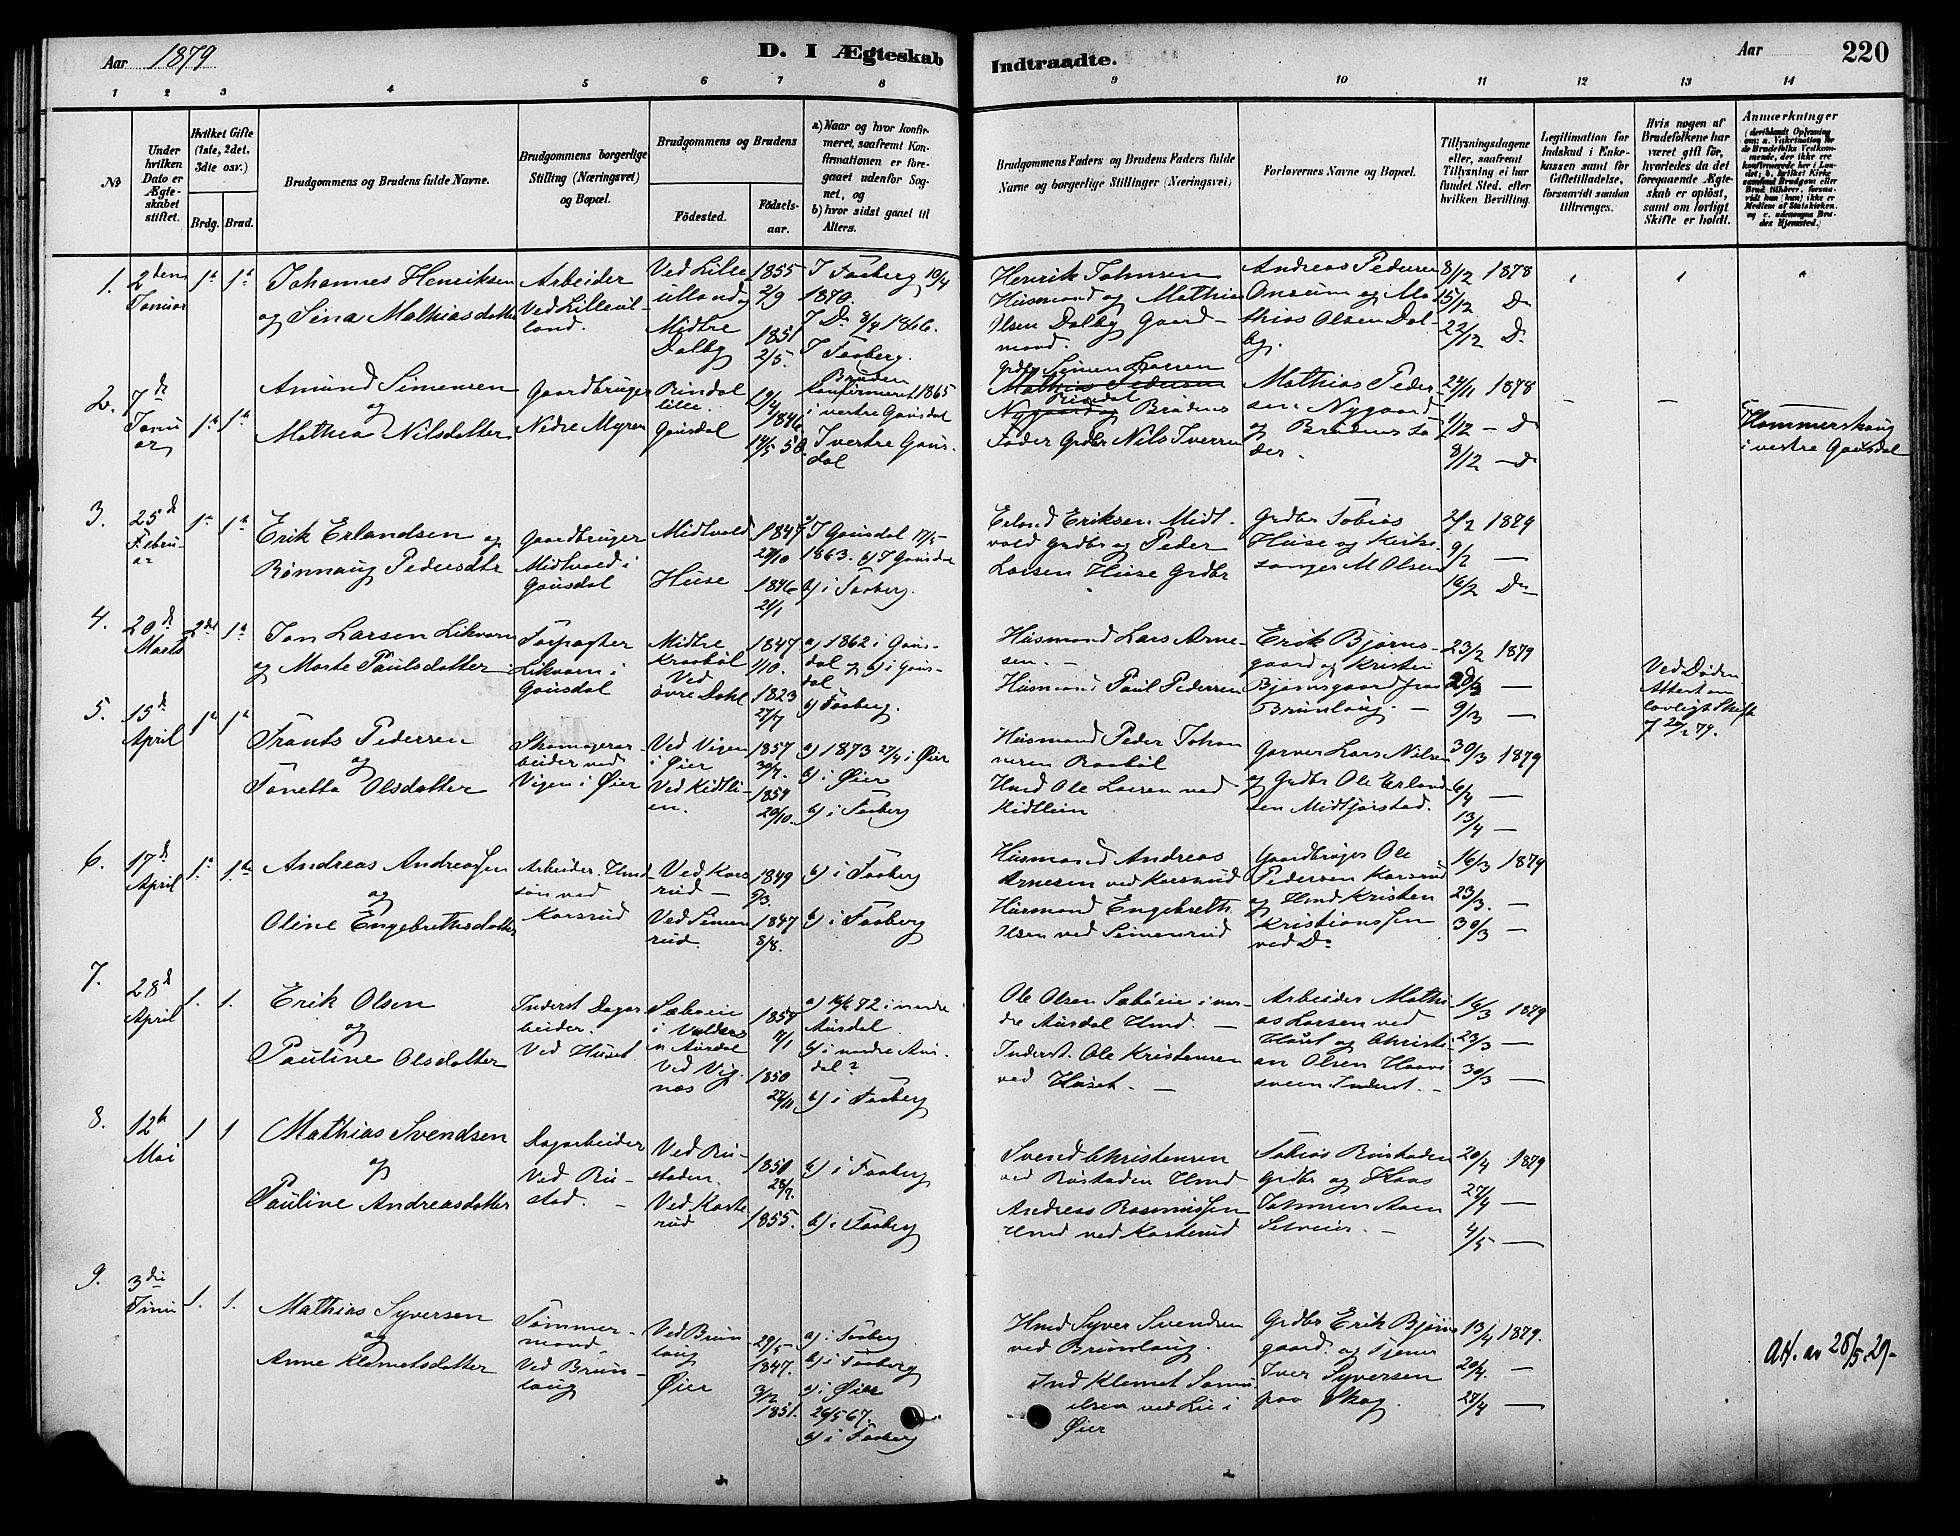 Aar 1879
D. I Ægteskab
Indtraadte.
Aar
220
1 2 3 4 5 6 7 8 9 10 11 12 13 14
№
Under hvilken Dato er Ægteskabet stiftet.
Hvilket Gifte (1ste, 2det, 3die osv.)
Brdg. Brud.
Brudgommens og Brudens fulde Navne.
Brudgommens borgerlige Stilling (Næringsvei) og Bopæl.
Brudgommens og Brudens
Fødested.
Fødselsaar.
a) Naar og hvor konfirmeret, saafremt Konfirmationen er foregaaet udenfor Sognet, og
b) hvor sidst gaaet til Alters.
Brudgommens Faders og Brudens Faders fulde Navne og borgerlige Stillinger (Næringsvei)
Forlovernes Navne og Bopæl.
Tillysningsdagene eller, saafremt Tillysning ei har fundet Sted, efter hvilken Bevilling.
Legitimation for Indskud i Enkekassen samt for Giftetilladelse, forsaavidt saadan tiltrænges.
Hvis nogen af Brudefolkene har været gift før, hvorledes da det foregaaende Ægteskab er opløst, samt om lovligt Skifte er holdt.
Anmærkninger
1.
2den Januar
1ste 1ste
Johannes Henriksen
og Sina Mathiasdatter
Arbeider
Ved Lilleulland.
Ved Lilleulland og
Midtre Dalby
1855 2/9
1851 2/5.
I Faaberg 10/4 1870.
I Do 8/4 1866.
I Faaberg.
Henrik Johnsen
Husmand og Mathias
Olsen Dalby Gaardmand.
Andreas Pedersen
Onsum og Mathias Olsen Dalby.
8/12 1878
15/12 Do
22/12 Do
2.
7de Januar
1ste 1ste
Amund Simensen
og
Mathea Nilsdatter
Gaardbruger
Nedre Myren
Rindal lille.
Gausdal
29/4 1846.
14/5 50.
Bruden konfirmeret 1865
i vestre Gausdal
I vestre Gausdal
Grdbr Simen Larsen
Mathias Pedersen
Rindal
Nygaard og Brudens
Fader Grdbr Nils Iversen
Mathias Pedersen Nygaard
og Brudens Fader.
24/11 1878
1/12 - Do
8/12 - Do
Hammershaug
i vestre Gausdal
3.
25de Februar
1ste 1ste
Erik Erlandsen og
Rønnaug Pedersdtr
Gaardbruger
Midtvold i
Gausdal
Midtvold
Huse
1847 29/10
1846 21/1
a) I Gausdal 17/5
1863. b) I Gausdal
b) i Faaberg.
Erland Eriksen Midtvold Grdbr og Peder
Larsen Huse Grdbr
Grdbr Tobias
Huse og Kirkesanger M Olsen
2/2 1879
9/2 —
16/2 Do
4.
20de Marts
2det 1ste
Jon Larsen Likvorn
og Marte Paulsdatter
Forpagter
Likvorn i
Gausdal
Midtre Kraabøl
Ved øvre Dahl
1847 1/10.
1823 27/7
a) 1862 i Gausdal og b) i Gausdal
b) Faaberg.
Husmand Lars Arnesen. —
Husmand Paul Pedersen
Erik Bjørnsgaard og Kristen
Bjørnsgaard paa
Brunlaug. —
23/2 1879
2/3 —
9/3 —
Ved Døden
Attest om
lovligt Skifte
5.
15de April
1ste 1ste
Frants Pedersen
og
Tonetta Olsdatter
Skomagerarbeider ved
Vigen i Øier
Ved Vigen
i Øier
Ved Kidtlien.
1857 30/7.
1854 20/10.
a) 1873 27/4 i Øier
b) i Øier
b) i Faaberg
Husmand Peder Johannesen Raabøl
Hmd Ole Larsen ved
Kidtlein
Garver Lars Nilsen
og Grdbr Ole Erlandsen Midtfjørstad.
30/3 1879
6/4 —
13/4 —
6.
17de April
1ste 1ste
Andreas Andreassen
og
Oline Engebrethsdatter
Arbeider, Hmdsøn ved
Korsrud
Ved Korsrud —
Ved Simenrud.
1849 5/3.
1847 8/8.
b) i Faaberg
b) i Faaberg
Husmand Andreas
Arnesen ved Korsrud
Husmand Engebreth
Olsen ved Simenrud
Gaardbruger Ole
Pedersen Korsrud
og Hmd Kristen
Kristianssen
ved Do
16/3 1879
23/3. —
30/3 —
7.
28de April
1. 1.
Erik Olsen
og
Pauline Olsdatter
Inderst Dagarbeider.
Ved Huset
Sæbøeie
i Valders
n Aurdal
Ved Vignæs
1854 7/1
1850 27/11
a) 16/6 72 i nordre
Aurdal.
b) i nordre Aurdal?
b) i Faaberg
Ole Olsen Sæbøeie i nordre Aurdal Hmd. —
Inderst Ole Kristensen
ved Huset. —
Arbeider Mathias Larsen ved
Haug og Christian Olsen Haavisveen Inderst. —
16/3 1879
23/3 —
30/3 —
8.
12te Mai
1 1
Mathias Svendsen
og
Pauline Andreasdatter
Dagarbeider
Ved Rustad. —
Ved Rustaden.
Ved Kasterud
1850 28/7.
1855.
b) i Faaberg
b) i Faaberg
Svend Christensen
ved Rustaden Hmd
Andreas Rasmussen
Hmd ved Kasterud
Tobias Rustaden
Grdbr og Haas
Johnsen Aaen
Selveier. —
20/4 1879
27/4 —
4/5 —
9.
3die Juni
1. 1.
Mathias Syversen
og
Anne Klemetsdatter
Tømmermand
Ved Brunlaug
Ved Brunlaug
Øier
29/5 1847.
3/2 1851.
a) i Faaberg.
b) i Faaberg
a) i Øier
26/5 67.
b) i Faaberg
Hmd Syver Svendsen
ved Brunlaug.
Ind Klemet Samuelsen ved Lie i
Øier
Grdbr Erik Bjørnsgaard. og Tjener
Iver Syversen
paa Skog.
13/4 1879.
20/4. —
27/4 —
Att. av 28/5.29-